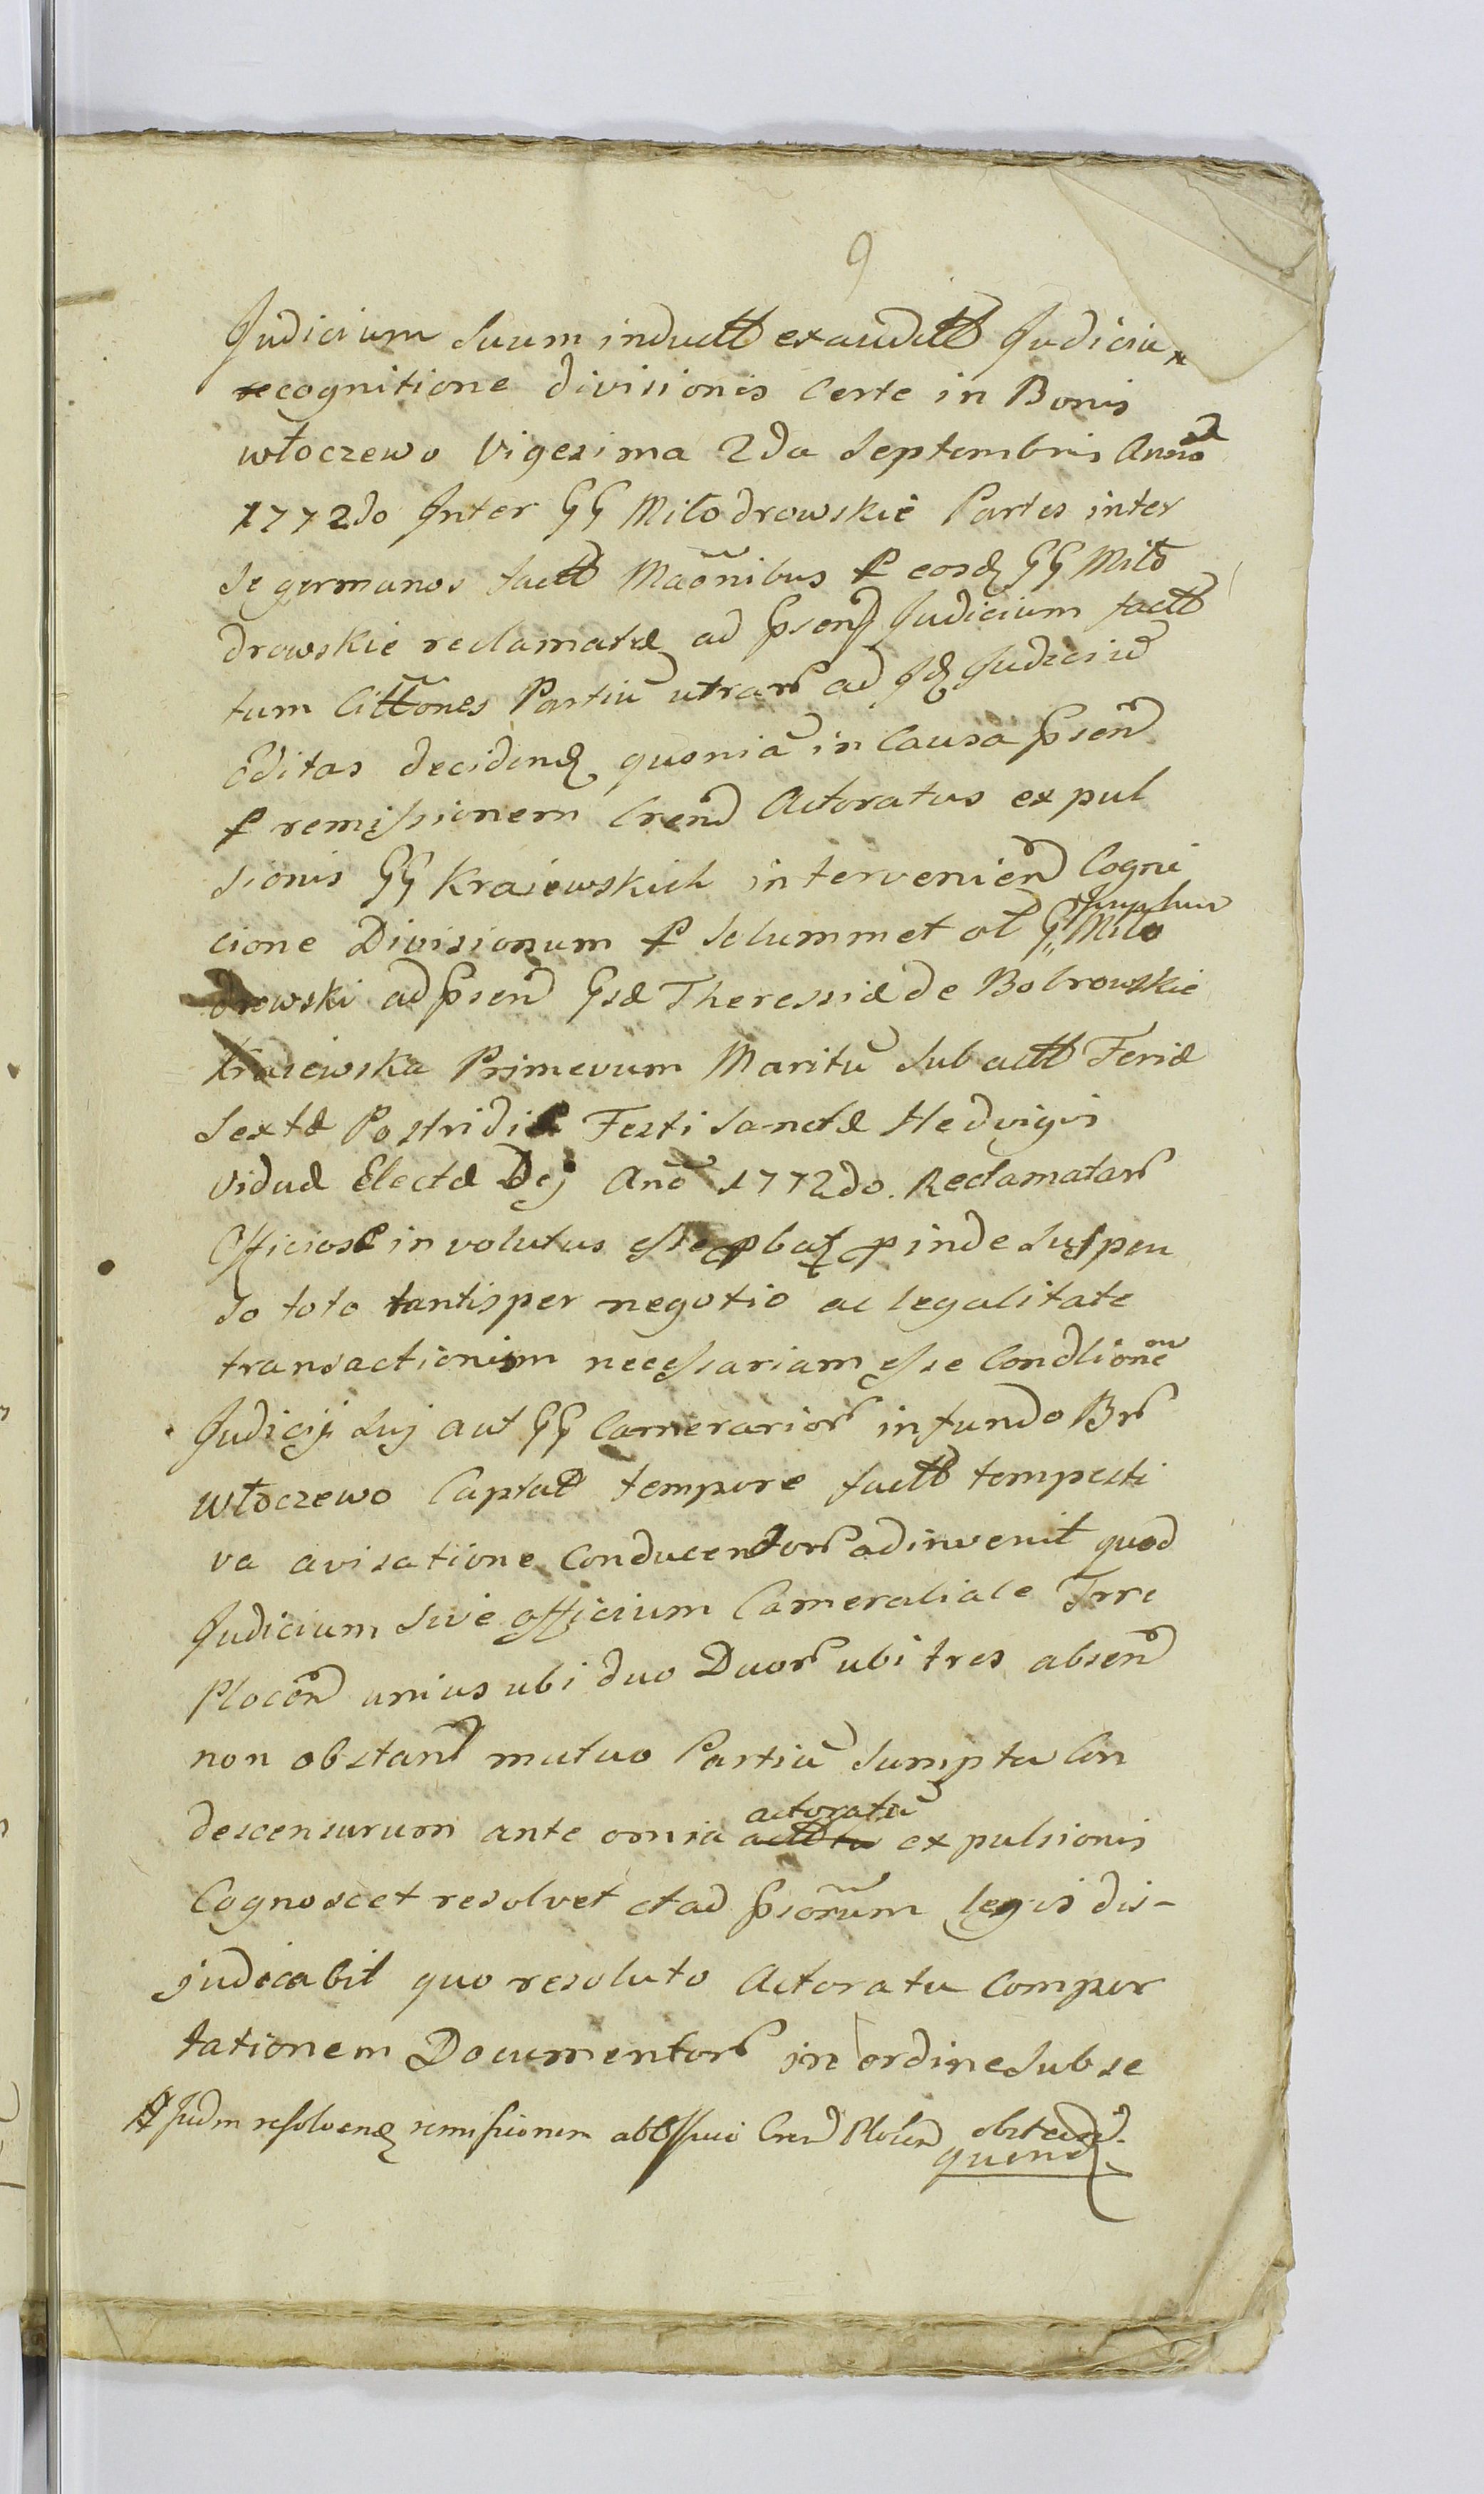 9
Judicium Suum inductt exaudett Judicium
recognitione divisionis Certe in Bonis
włoczewo Vigesima 2da Septembris Anno
1772do Inter GG Miłodrowskie Partes inter
se germanos factt Maõnibus P eosd GG Miło
drowskie reclamatæ ad psend Judicium factt
tum Cittones Partiũ utrarũ ad Id Judiciũ
Editas decidend quoniã in Causa psend
P remissionem Crend Actoratus expul
sionis GG Kraiewskich intervenien Cogni
cione Divisionum P solummet ol G Miło
drowski ad psend Gsæ Theressiæ de Bobrowskie
Kraiewska Primevum Maritũ Sub actt Feriæ
Sextæ Postridie Festi Sanctæ Hedvigis
Viduæ Electæ Dej Anõ 1772do. Reclamatarũ
Officiose involutus esse pbat pinde suspen
so toto tantisper negotio ac legalitate
transactionim necessariam esse Condtionem
Judicij Suj aut GG Camerariorũ in fundo Brũ
włoczewo Captat tempore factt tempesti
va avisatione Conducentorũ adinvenit quod
Judicium sive officium Cameraliale Trre
Plocen unius ubi duo Duorũ ubi tres absen
non obstan mutuo Partiũ Sumptu Con
descensurum ante omia actoratũ expulsionis
Cognoscet resolvet et ad psorum legis dis-
judicabit quo resoluto Actoratu Compor
tationem Documentorũ in ordine Subse
Judm resolvend remissionem abb Crend Plocen obstand.
quend